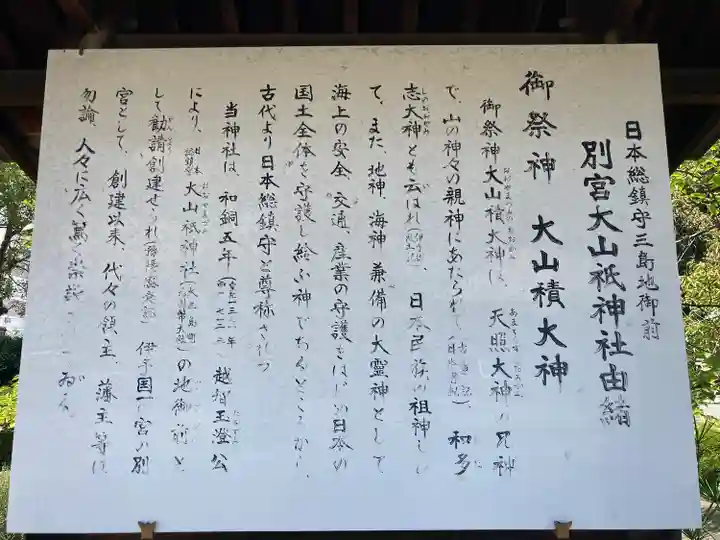 日本総鎮守三島地御前
別宮大山祇神社由緒
御祭神 大山積大神
御祭神大山積大神は、天照大神の兄神
で、山の神々の親神にあたられ(古事記・日本書紀)、和多
志大神とも云はれ(伊予風土記)、日本民族の祖神とし
て、また、地神、海神兼備の大霊神として
海上の安全、交通、産業の守護をはじめ日本の
国土全体を守護し給ふ神であるところから、
古代より日本総鎮守と尊称されつ
当神社は、和銅五年(西暦七一二)越智玉澄公
により、日本総鎮守大山祇神社(大三島町)の地御前と
して勧請創建せられ、伊予国一ノ宮の別
宮として、創建以来、代々の領主、藩主等は
勿論、人々に広く篤く崇敬